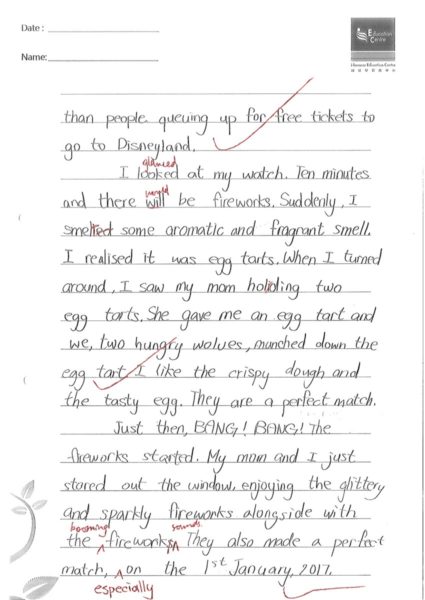 Date :
Education
Centre
Name:
than people queuing up for free tickets to
go to Disneyland.
glanced
I looked at my watch. Ten minutes
would
and there will be fireworks. Suddenly, I
smelled some aromatic and fragrant smell.
I realised it was egg tarts. When I turned
around, I saw my mom holding two
egg tarts. She gave me an egg tart and
we, two hungry wolves, munched down the
egg tart. I like the crispy dough and
the tasty egg. They are a perfect match.
Just then, BANG! BANG! The
fireworks started. My mom and I just
stared out the window, enjoying the glittery
and sparkly fireworks alongside with
booming sounds
the fireworks. They also made a perfect
match, on the 1st January, 2017.
especially